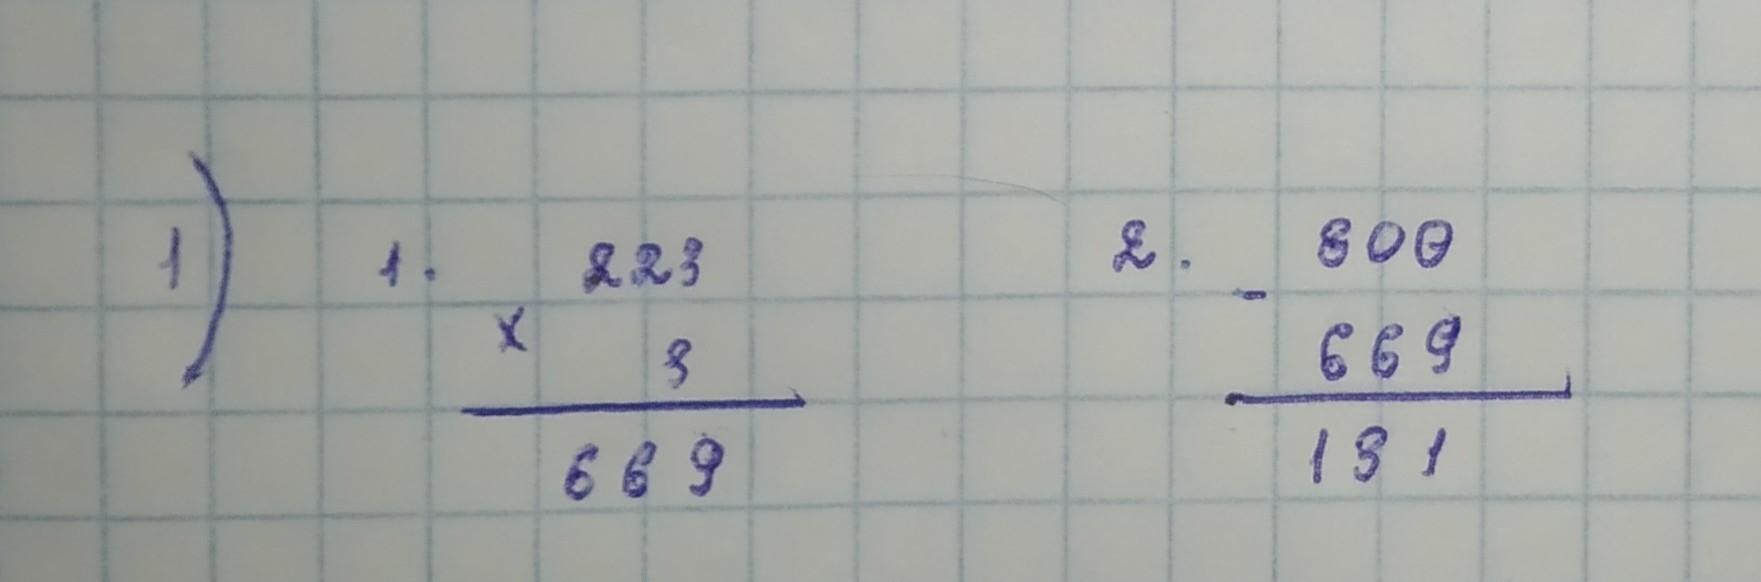 1) 1. 223 2. 800
× 3 - 669
669 131